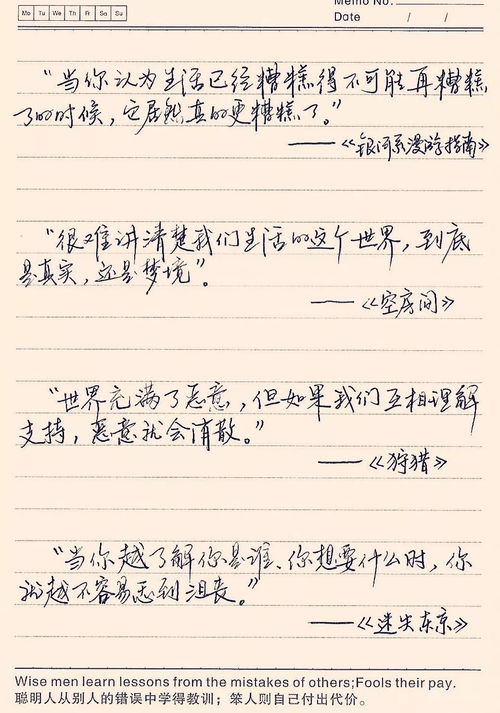 Memo No.
Mo Tu We Th Fr Sa Su
Date / /
“当你认为生活已经糟糕得不可能再糟糕
了的时候，它居然真的更糟糕了。”
——《银河系漫游指南》
“很难讲清楚我们生活的这个世界，到底
是真实，还是梦境”。
——《空房间》
“世界充满了恶意，但如果我们互相理解
支持，恶意就会消散。”
——《狩猎》
“当你越了解你是谁、你想要什么时，你
就越不容易感到沮丧。”
——《迷失东京》
Wise men learn lessons from the mistakes of others;Fools their pay.
聪明人从别人的错误中学得教训；笨人则自己付出代价。